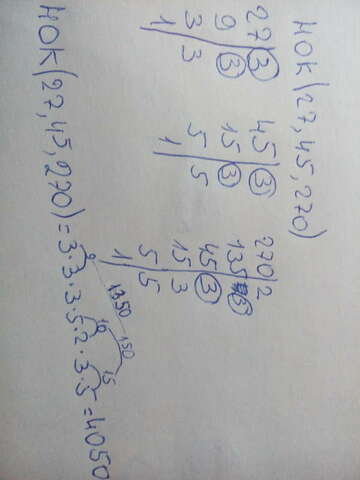 НОК(27,45,270)
27 3
9 3
3 3
1
45 3
15 3
5 5
1
270 2
135 3
45 3
15 3
5 5
1
НОК(27,45,270)=3·3·3·5·2·3·5=4050
9 10 15
1350 150